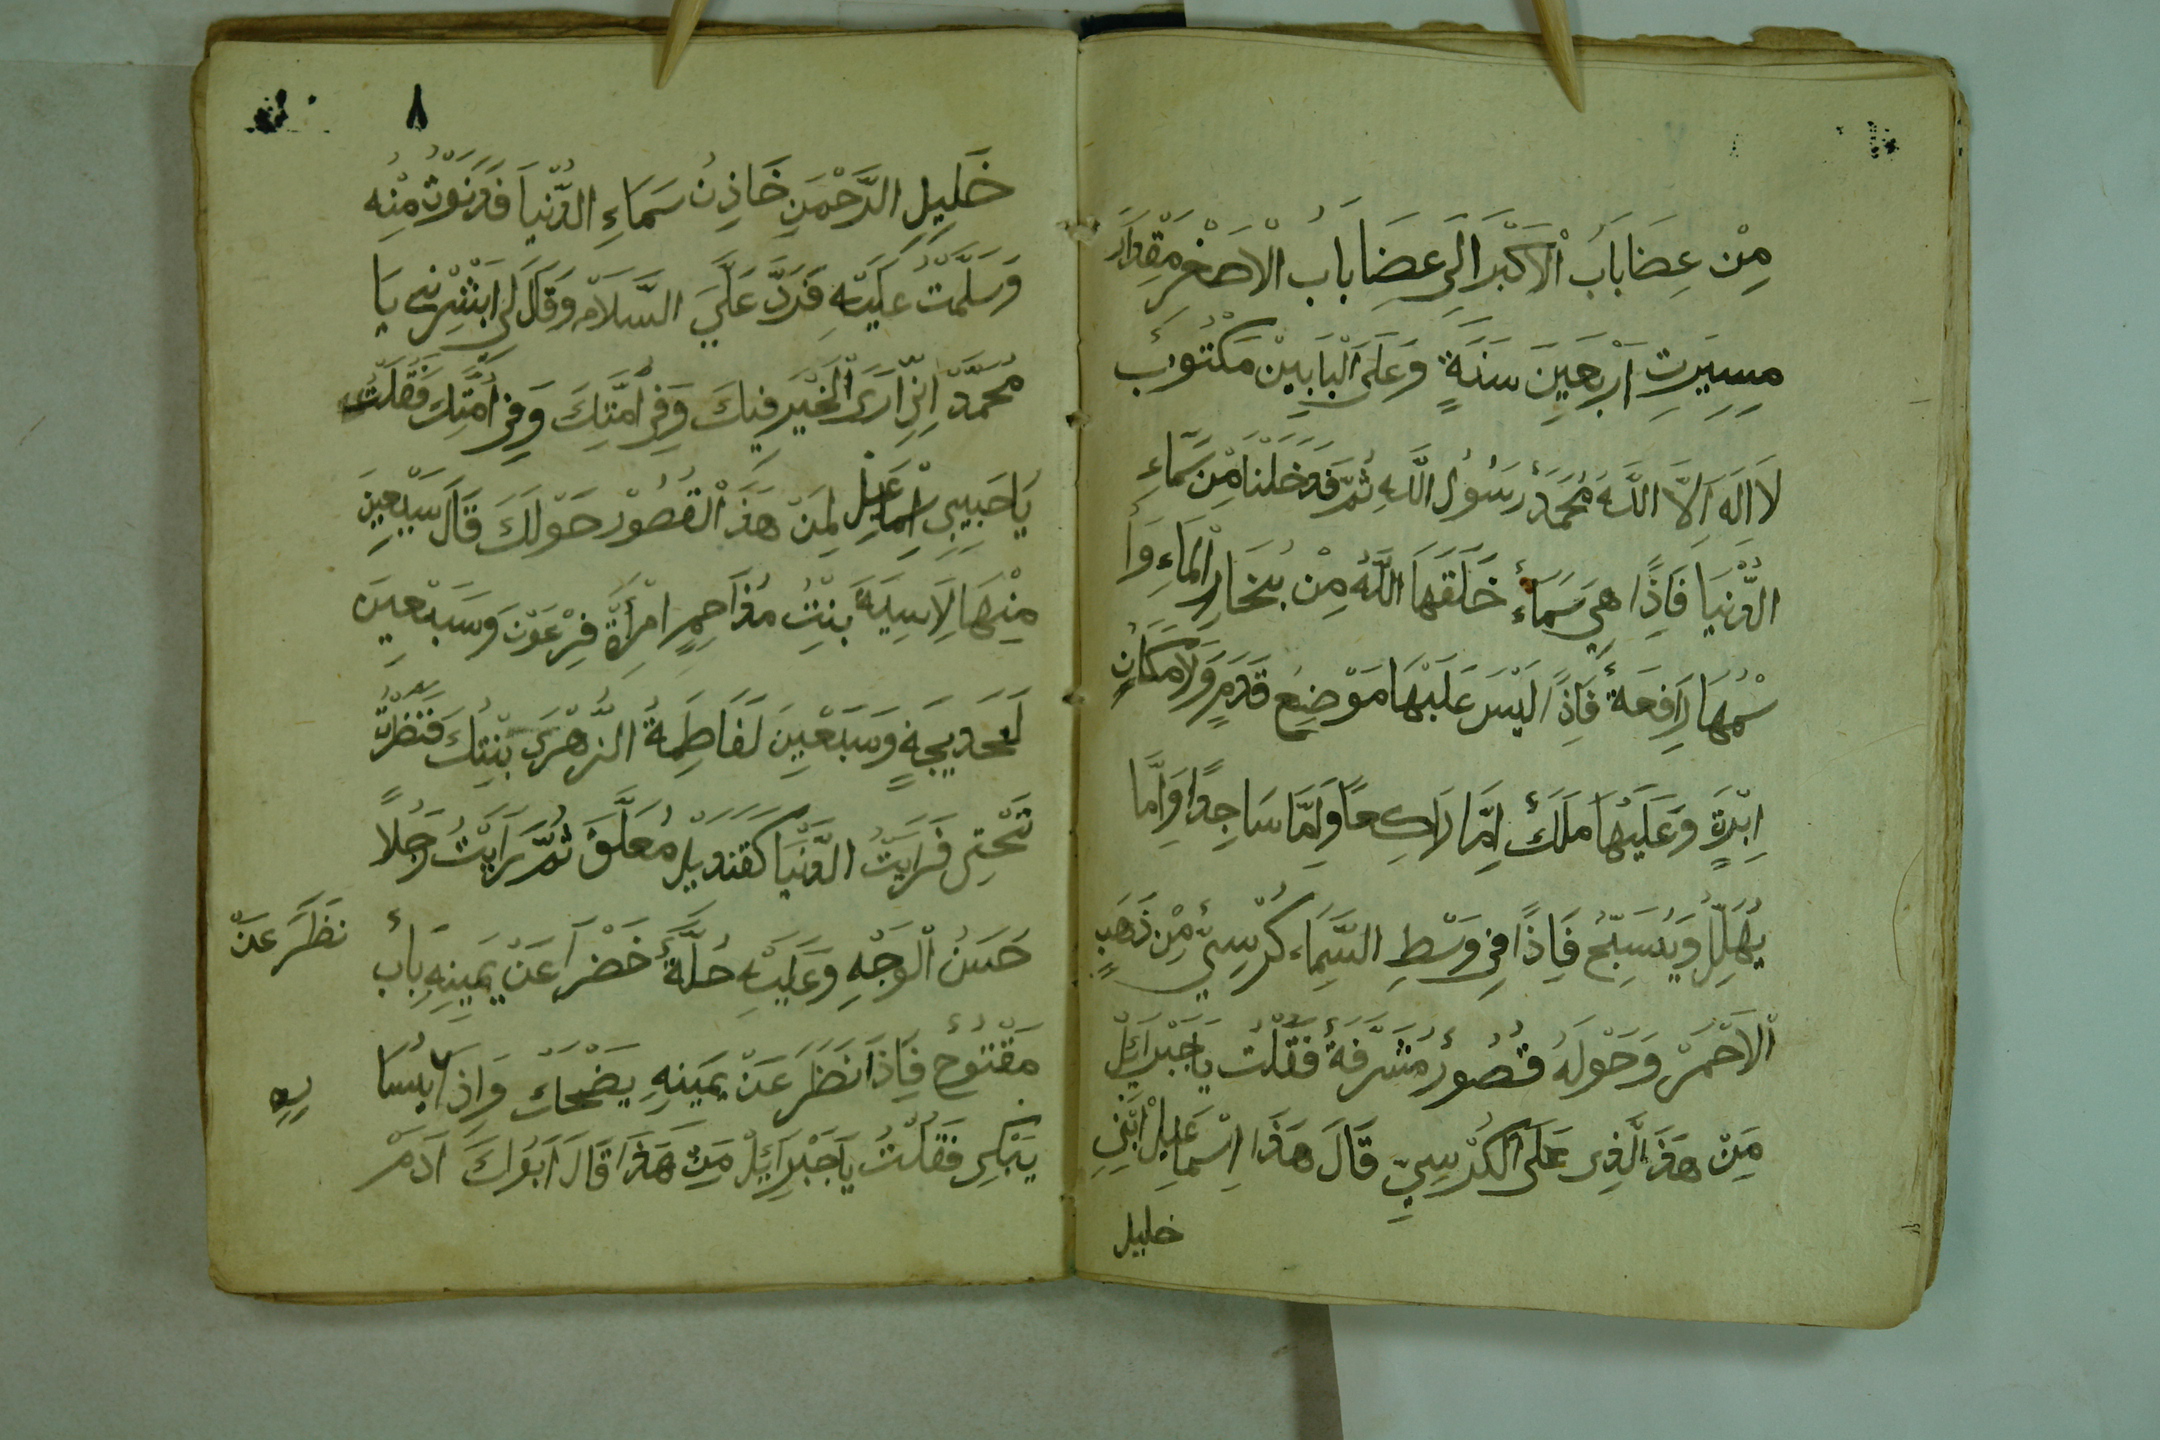 مِنْ عِضَابَابُ الْاَكْبَرَ اِلَى عِضَابَابُ الْاَصْغَرِ مِقْدَارَ
مِسِيَرتِ اَرْبَعِيَنَ سَنَةٍ وَعَلَى الْبَابِيْنَ مَكْتُوبٌ
لَا اِلَهَ اِلَّا اللَّهَ مُحَمَدٌ رَسُولُ اللَّهِ ثُمَّ فَدَخَلْنَا مِنْ سَمَاءِ
الدُّنْيَا فَاِذًا هِيَ سَمَاءٌ خَلَقَهَا اللَّهُ مِنْ بُخَارِ الْمَاءِ وَا
سْمُهَا رَافِعَةٌ فَاِذًا لَيْسَ عَلَيْهَا مَوْضِعِ قَدَمٍ وَلَا مَكَانٍ
اِبْرَةٍ وَعَلَيْهَا مَلَكٌ اِمَّا رَاكِعًا وَاِمَّا سَاجِدًا وَاِمَّا
يُهَلِّلُ وَيُسَبِّحُ فَاِذًا فِى وَسْطِ السَّمَاءِ كُرْسِيٌّ مِنْ ذَهَبٍ
الْاَحْمَرْ وَحَوْلَهُ قُصُورٌ مُشَرَّفَةٌ فَقُلْتُ يَا جَبْرَائِلْ
مَنْ هَذَ الَّذِى عَلَى الْكُرْسِيِّ قَالَ هَذَا اِسْمَاعِيلْ ابْنِ
خليل
٨
خَلِيلِ الرَّحْمَنِ خَاذِنُ سَمَاءِ الدُّنْيَا فَدَنَوْتُ مِنْهِ
وَسَلَّمْتُ عَلَيْهِ فَرَدَّ عَلَيَّ السَّلَامُ وَقَالَ لِى اَبْشِرْنِى يَا
مُحَمَّدْ اِنِّى اَرَى الْخَيْرَ فِيكَ وَفِى اُمَّتِكَ وَفِى اُمَّتِكَ فَقُلْتُ
يَا حَبِيبِى اِسْمَاعِيلْ لِمَنْ هَذَ الْقُصُورْ حَوْلَكَ قَالَ سَبْعِينَ
مِنْهَا لِاَسِيَةَ بِنْتُ مُذَاحِمٍ امْرَأَةَ فِرْعَوْنَ وَسَبْعِينَ
لَخَدِيجَةٍ وَسَبَعْينَ لَفَاطِمَةُ الزَّهْرَى بْنِتِكَ فَنَظَرْتُ
تَحْتِى فَرَاَيْتُ الدَّنْيَا كَقَنْدِيلْ مُعَلَّقَ ثُمَّ رَاَيْتُ رَجُلًا
حَسَنُ الْوَجْهِ وَعَلَيْهِ حُلَّةٌ خَضْرَآ عَنْ يَمِينِهِ بَابٌ
نَظَرَ عَنْ
مَفْتُوحٌ فَاِذَا نَظَرَ عَنْ يَمِينِهِ يَضْحَكْ وَاِذَا يُسَا
يَبْكِى فَقُلْتُ يَا جَبْرَائِلْ مَنْ هَذَا قَالَ اَبُوكَ اَدَمْ